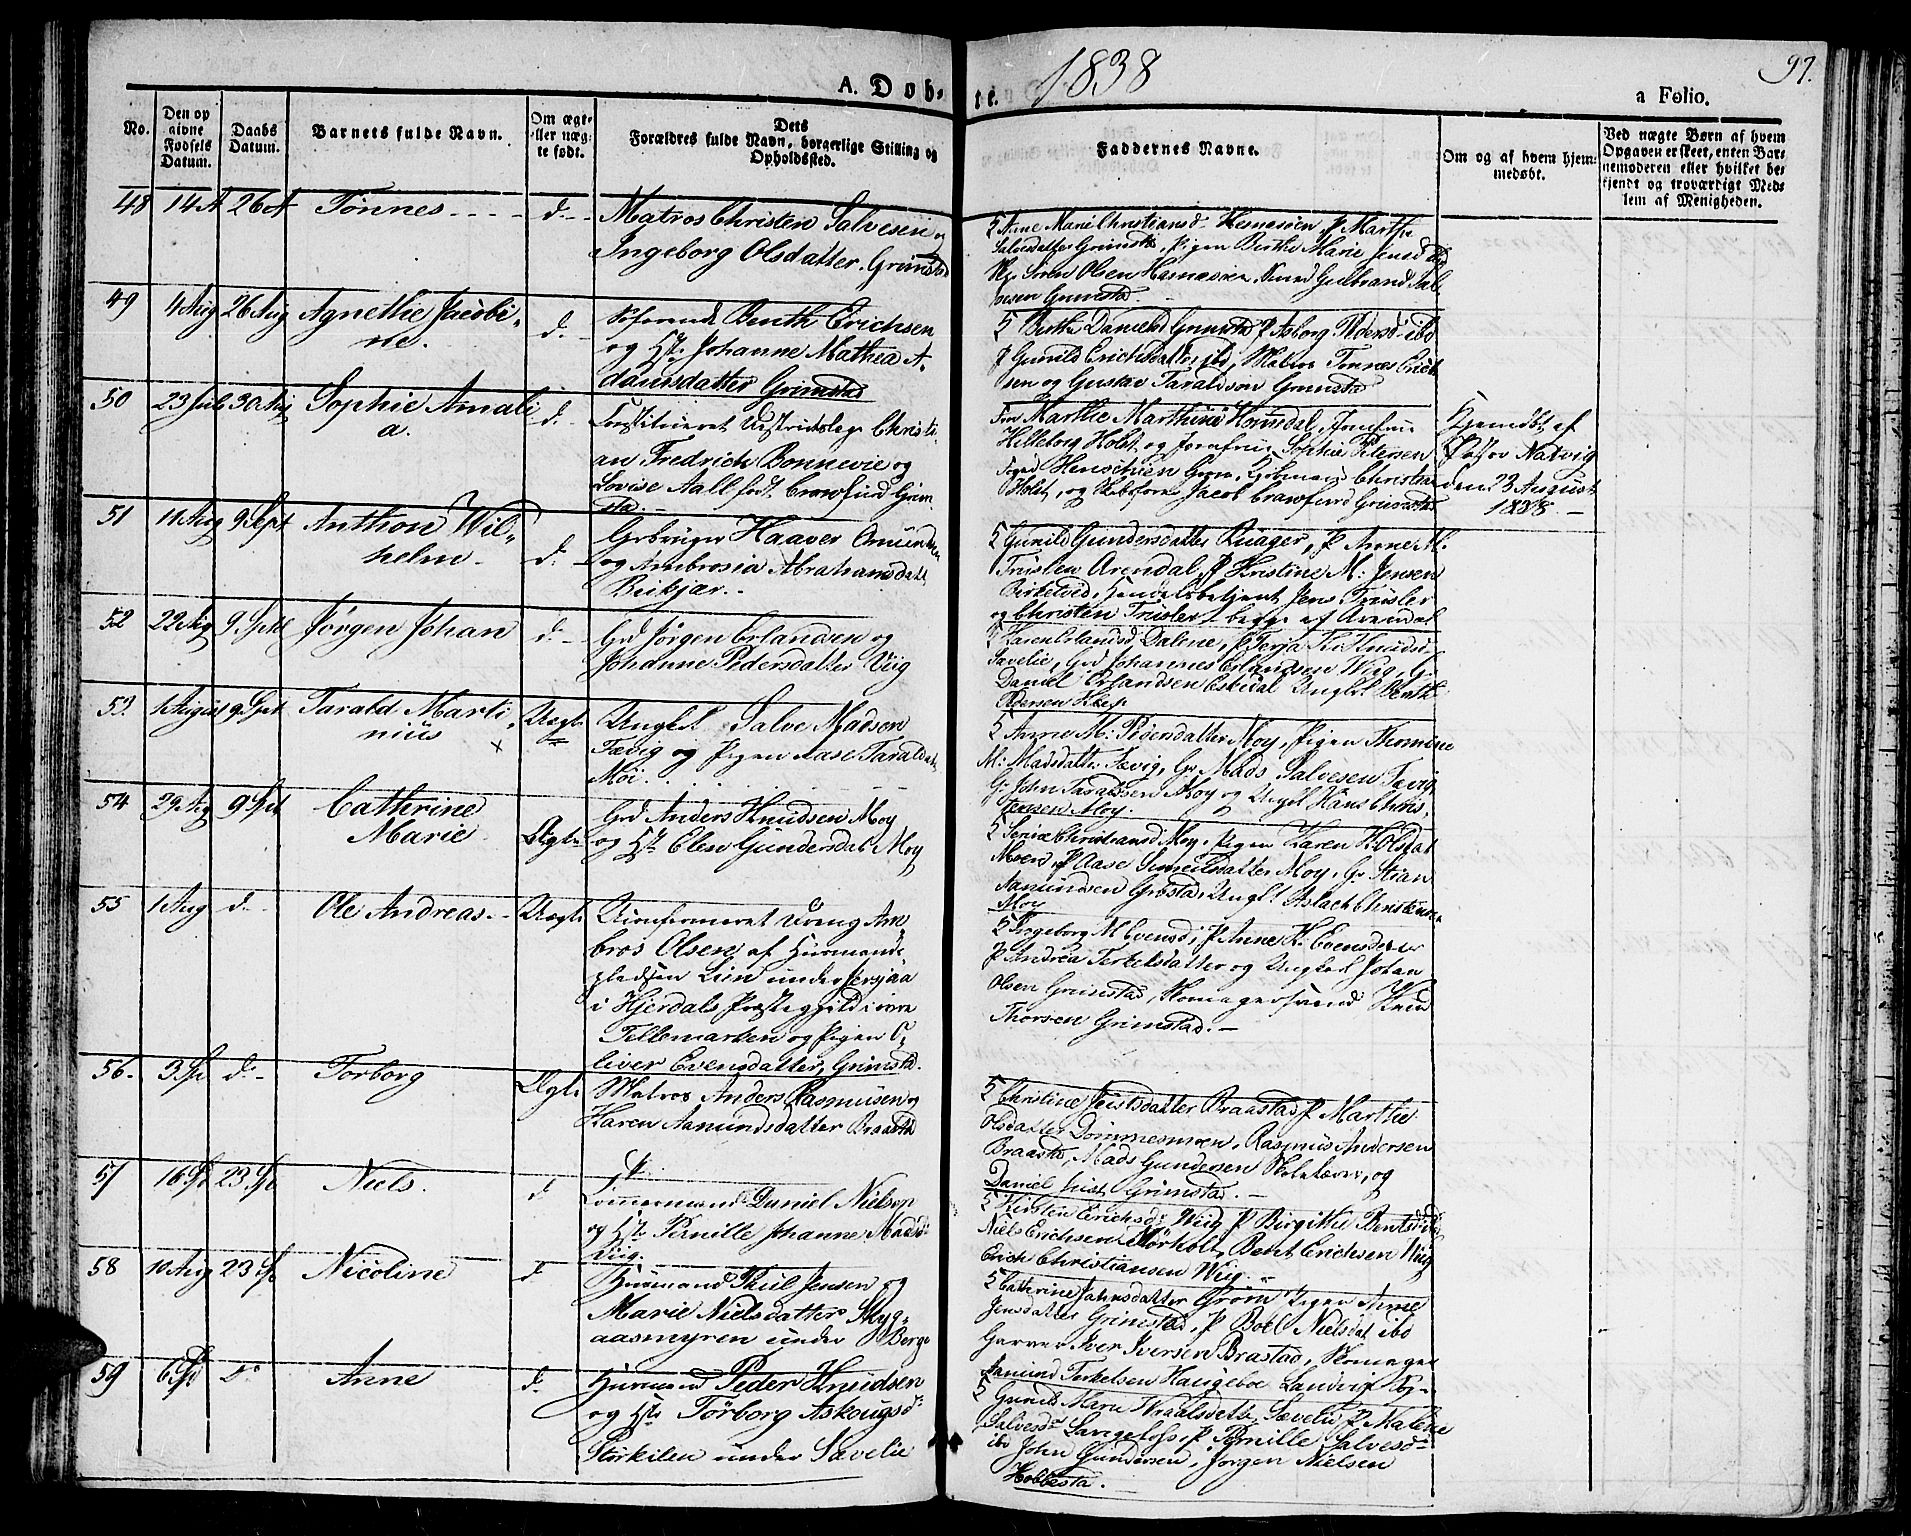 A. Døb-
te.
1838
97.
a Folio.
No.
Den op
givne
Fødsels
Datum.
Daabs
Datum.
Barnets fulde Navn.
Om ægte
eller uæg-
te født.
Dets
Forældres fulde Navn, borgerlige Stilling og
Opholdssted.
Faddernes Navne.
Om og af hvem hjem-
medøbt.
Ved uægte Børn af hvem
Opgaven er skeet, enten Bar-
nemoderen eller hvilket be-
kjendt og troværdigt Med-
lem af Menigheden.
48 14 A 26 A Tønnes d.
Matros Christen Salvesen og
Ingeborg Olsdatter. Grimstad
5 Anne Marie Christiansd Hesnesøen P Marthe
Salvesdatter Grimstd, Pigen Berthe Marie Jensd ibd
Søren Olsen Hesnesøen, Gudbrand Sal-
vesen Grimstad.
49 4 Aug 26 Aug Agnethe Jacobi-
ne. d.
Søfarende Benth Erichsen
og Hst. Johanne Mathea A-
damsdatter Grimstad
5 Berthe Danielsd Grimstad P Asborg Pedersd ibd
P Gunild Erichsdatter ibd, Matros Tønnes Erich-
sen og Gustav Taraldson Grimstad
50 23 Juli 30 Aug Sophie Amali
a. d.
Constitueret Distriktslæge Christi-
an Fredrich Bonnevie og
Lovise Aall født Crawfurd Grim-
stad.
Fru Marthe Marthine Homsdal, Jomfrue
Hilleborg Holst og Jomfrue Sophie Petersen
Foged Henschien, Kjøbmand Christian
Holst, og Skibsfører Jacob Crawfurd Grimstad
Hjemdøbt af
Pastor Natvig
den 23 August
1838
51 11 Aug 9 Sept Anthon Wil-
helm. d.
Grbruger Haaver Omundsen
og Ambrosia Abrahamsdatt
Beikjær.
5 Gunild Gundersdatter Ruager, P Anne M.
Truslen Arendal, P Kristine M. Jensen
Birketved, Handelsbetjent Jens Trusler
og Christen Trusler begge af Arendal
52 22 Aug 9 Sept Jørgen Johan d.
Grd Jørgen Erlandsen og
Johanne Pedersdatter Viig
Karen Erlandsd Dalene, P Terja K. Knudsd
Savelie, Grd Johannes Erlandsen Wiig, G.
Daniel Erlandsen Eskedal Ungkl Benth
Pedersen
53. 1 August 9 Sept Tarald Marti-
nius Uægt.
Ungkl Salve Madsen
Fævig og Pigen Aase Taraldsd
Moi.
5 Anne M. Pedersdatter Moy, Pigen Thomine
M. Madsdatter Fævig, Gr Mads Salvesen Fævig
G. John Taraldsen Moy og Ungkl Hans Chris-
tensen Moy.
54 29 Aug 9 Sept Cathrine
Marie Ægt.
Grd Anders Knudsen Moy
og Hst Elen Gundersdat Moy
Christiansd Moy, Pigen Karen K. Olsdat
Moen, P Aase Moy, Gr Stian
Aamundsen Grøstad, Ungkl Aslach Christensen
Moy
55 1 Aug d. Ole Andreas. Uægt.
Uconfirmeret Dreng Am-
bros Olsen af Huusmands-
pladsen Lien under
i Hjerdals Præstegjeld i øvre
Tellemarken og Pigen O-
liver Evensdatter, Grimstd.
5 Ingeborg M Evensd, P Anne K. Evensdatter
P Andrea Terkelsdatter og Ungkarl Johan
Olsen Grimstad, Skomagersvend Knud
Thorsen Grimstad.
56. 3 Sp d. Torborg Ægt.
Matros Anders Rasmusen og
Karen Aamundsdatter Braastd
5 Christine Justsdatter Braastad P Marthe
Olsdatter Dommesmoen, Rasmus Andersen
Braastd, Mads Gundersen Skolelærer, og
Daniel Just Grimstad.
57 16 Sp 23 Sp Niels. d
Daniel Nielsen
og Hst. Pernille Johanne Madsd.
Viig.
5 Kirsten Erichsd Wiig P Birgitte Bentsd ibd
Niels Erichsen Mørholt, Bent Erichsen Wiig
Erich Christiansen Wiig.
58 10 Aug 23 Sp Nicoline d
Huusmand Poul Jensen og
Marie Nielsdatter Skyg-
aasmyren under Berge
5 Cathrine Jahnsdatter Groom Pigen Anne
Jensdatter Grimstad, P Boel Nielsdat ibd
Garver Iver Iversen Brastad, Skomager
Aamund Terkelsen Haugeboe Landvig Sog-
59 6 Sp d. Anne d.
Huusmand Peder Knudsen
og Hst. Torborg Askougsd
Størkilen under Savelie
5 Gunild Marn Wraalsdatter, Sævelie P Malene
Salvesd, P Pernille Salvesd
ibd John Gundersen, Jørgen Nielsen
Hobbestad.